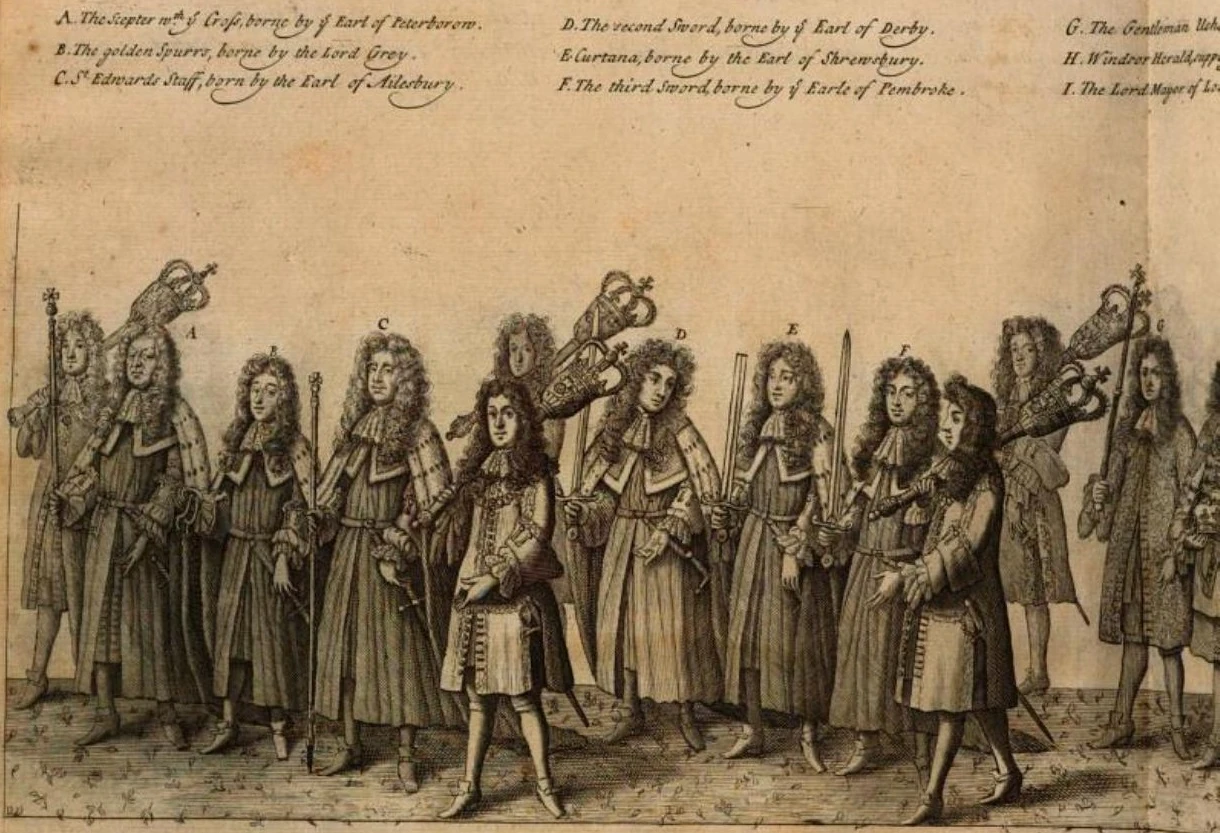 A. The Scepter wth ẙ Cross, borne by ẙ Earl of Peterborow.
B. The golden Spurrs, borne by the Lord Grey.
C. St Edwards Staff, born by the Earl of Ailesbury.
D. The second Sword, borne by ẙ Earl of Derby.
E Curtana, borne by the Earl of Shrewsbury.
F. The third Sword, borne by ẙ Earle of Pembroke.
G. The Gentleman
H. Windsor Herald,
I. The Lord Mayor of
A
B
C
D
E
F
G